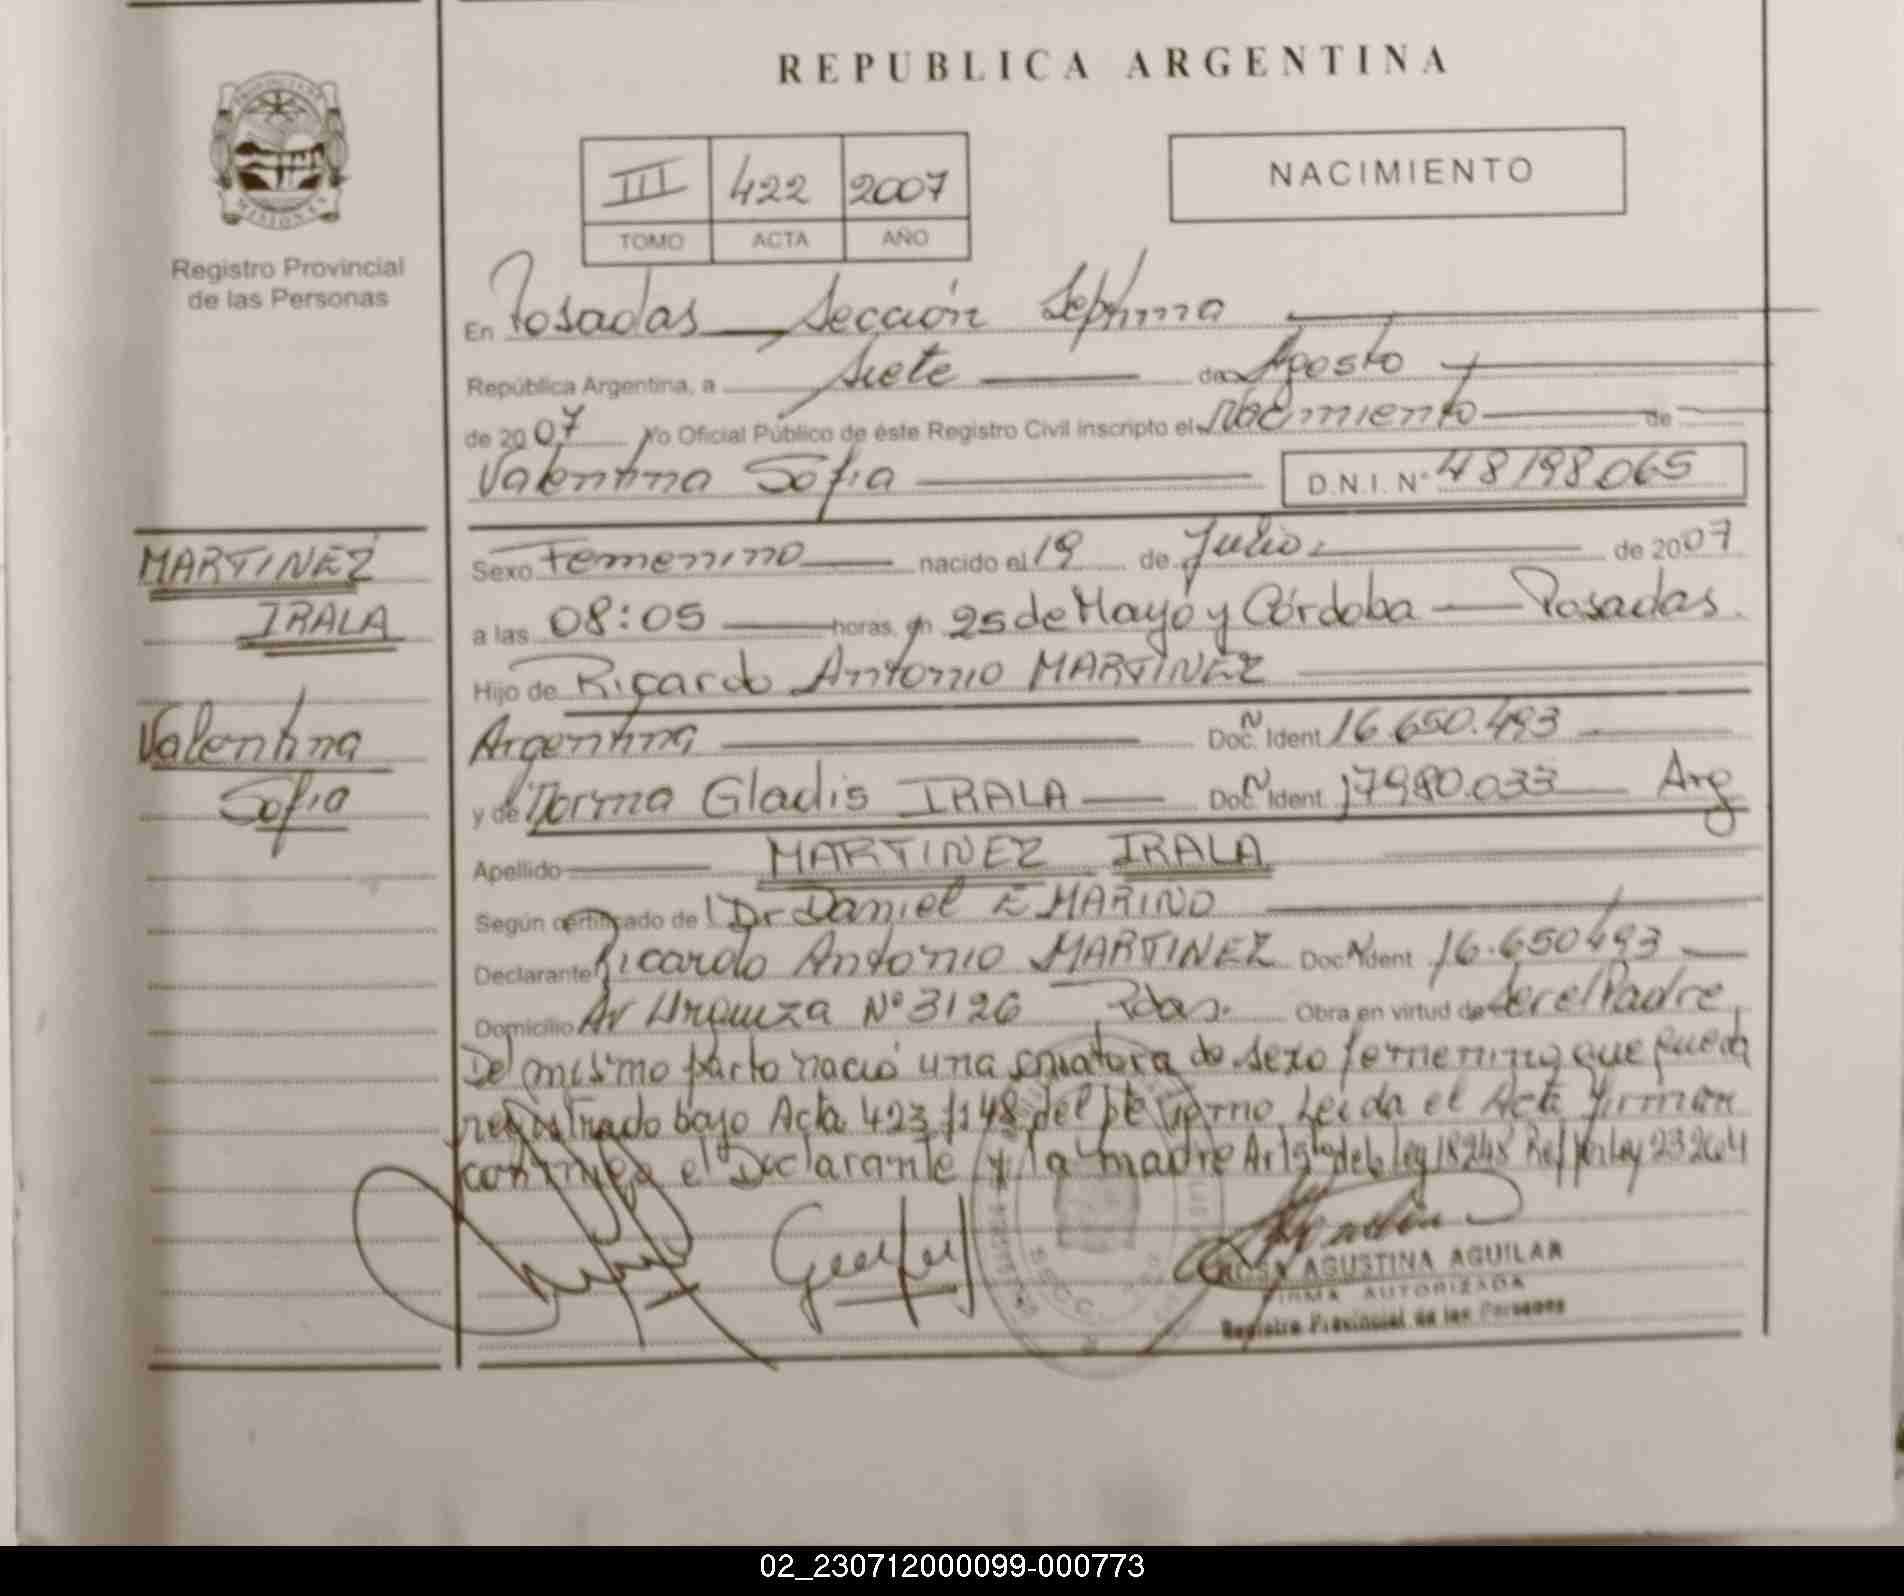 REPUBLICA ARGENTINA
PROVINCIA DE
MISIONES
Registro Provincial
de las Personas
III 422 2007
TOMO ACTA AÑO
NACIMIENTO
En Posadas Sección Septima
República Argentina, a Siete de Agosto
de 2007 Yo Oficial Público de éste Registro Civil inscripto el Nacimiento de
Valentina Sofia D.N.I. Nº 48198065
MARTINEZ
IRALA
Valentina
Sofia
Sexo Femenino nacido el 19 de Julio de 2007
a las 08:05 horas, en 25 de Mayo y Córdoba Posadas.
Hijo de Ricardo Antonio MARTINEZ
Argentina Doc. Ident 16.650.493
y de Norma Gladis IRALA Doc. Ident 17980.033 Arg
Apellido MARTINEZ IRALA
Según certificado de Dr Daniel E MARINO
Declarante Ricardo Antonio MARTINEZ Doc. Ident 16.650493
Domicilio Av Urquiza Nº 3126 Pdas. Obra en virtud de ser el Padre
Del mismo parto nació una criatura de sexo femenino que queda
registrado bajo Acta 423 del pte Leida el Acta firman
conmigo el Declarante y la madre Art de la Ley 18248 Ref por Ley 23264
AGUSTINA AGUILAR
FIRMA AUTORIZADA
Registro Provincial de las Personas
02_230712000099-000773